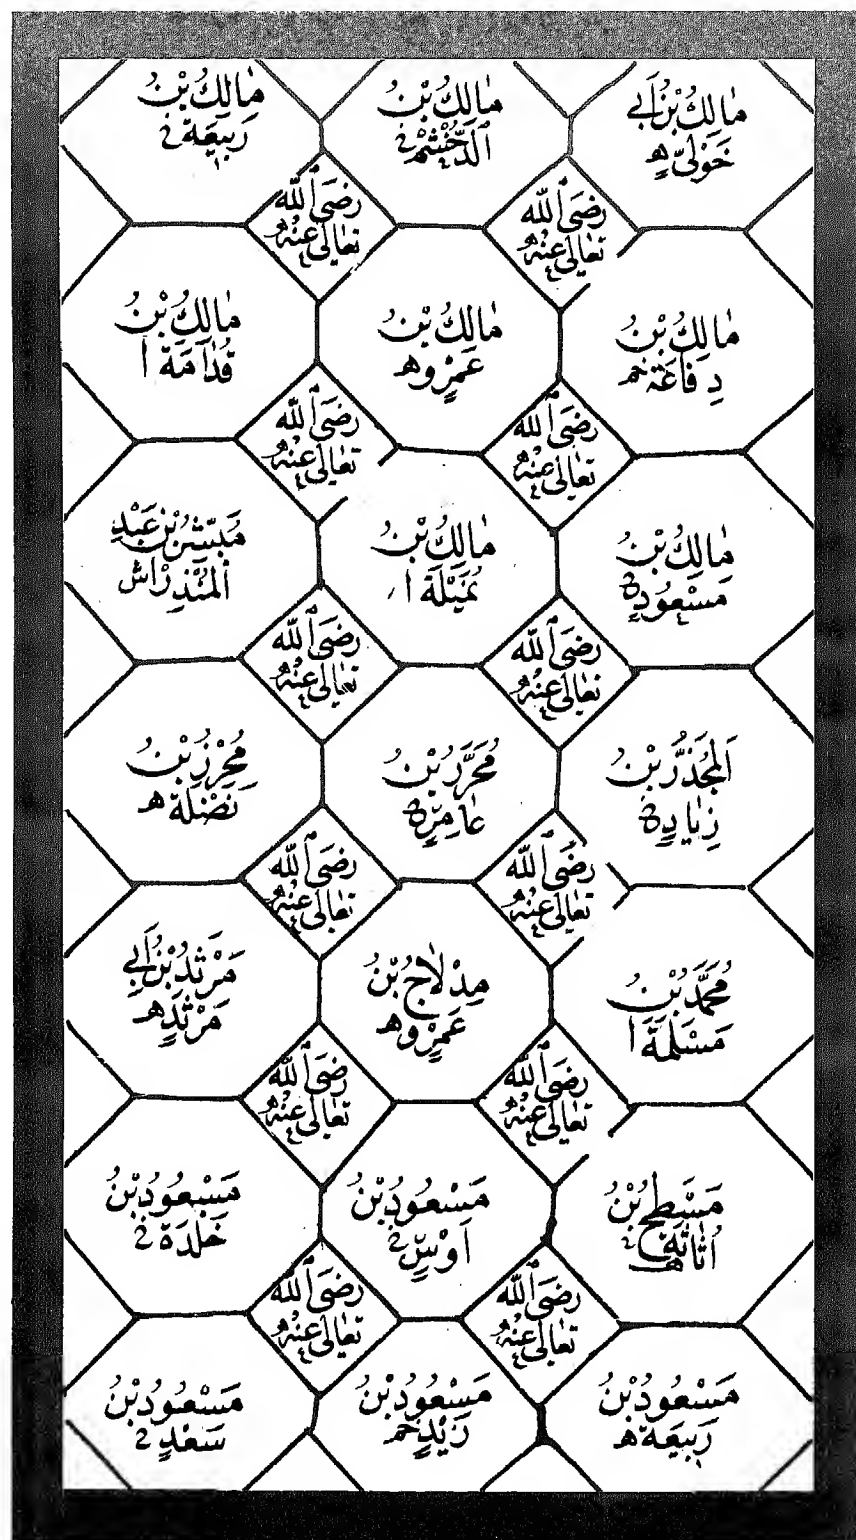 مَالِكُ بْنُ اَبِي
خَوْلِيٍّ ھ
مَالِكُ بْنُ
الدُّخْشُمْ خ
مَالِكُ بْنُ
رَبِيْعَةَ خ
رَضِيَ اللّٰه
تَعَالٰى عَنْهُ
رَضِيَ اللّٰه
تَعَالٰى عَنْهُ
مَالِكُ بْنُ
دِفَاعَة خم
مَالِكُ بْنُ
عَمْرٍو ھ
مَالِكُ بْنُ
قُدَامَةَ ا
رَضِيَ اللّٰه
تَعَالٰى عَنْهُ
رَضِيَ اللّٰه
تَعَالٰى عَنْهُ
مَالِكُ بْنُ
مَسْعُودٍ
مَالِكُ بْنُ
نُمَيْلَةَ ا
مُبَشِّرُ بْنُ عَبْدِ
الْمُنْذِرْ اش
رَضِيَ اللّٰه
تَعَالٰى عَنْهُ
رَضِيَ اللّٰه
تَعَالٰى عَنْهُ
اَلْمُجَذَّرُ بْنُ
زِيَادٍ
مُحَرَّرُ بْنُ
عَامِرٍ
مُحْرِزُ بْنُ
نَضْلَةَ ھ
رَضِيَ اللّٰه
تَعَالٰى عَنْهُ
رَضِيَ اللّٰه
تَعَالٰى عَنْهُ
مُحَمَّدُ بْنُ
مَسْلَمَةَ ا
مِدْلَاجُ بْنُ
عَمْرٍو ھ
مَرْثَدُ بْنُ اَبِي
مَرْثَدٍ ھ
رَضِيَ اللّٰه
تَعَالٰى عَنْهُ
رَضِيَ اللّٰه
تَعَالٰى عَنْهُ
مِسْطَحُ بْنُ
اُثَاثَةَ ھ
مَسْعُودُ بْنُ
اَوْسٍ خ
مَسْعُودُ بْنُ
خَلْدَةَ خ
رَضِيَ اللّٰه
تَعَالٰى عَنْهُ
رَضِيَ اللّٰه
تَعَالٰى عَنْهُ
مَسْعُودُ بْنُ
رَبِيْعَةَ ھ
مَسْعُودُ بْنُ
زَيْدٍ خم
مَسْعُودُ بْنُ
سَعْدٍ خ